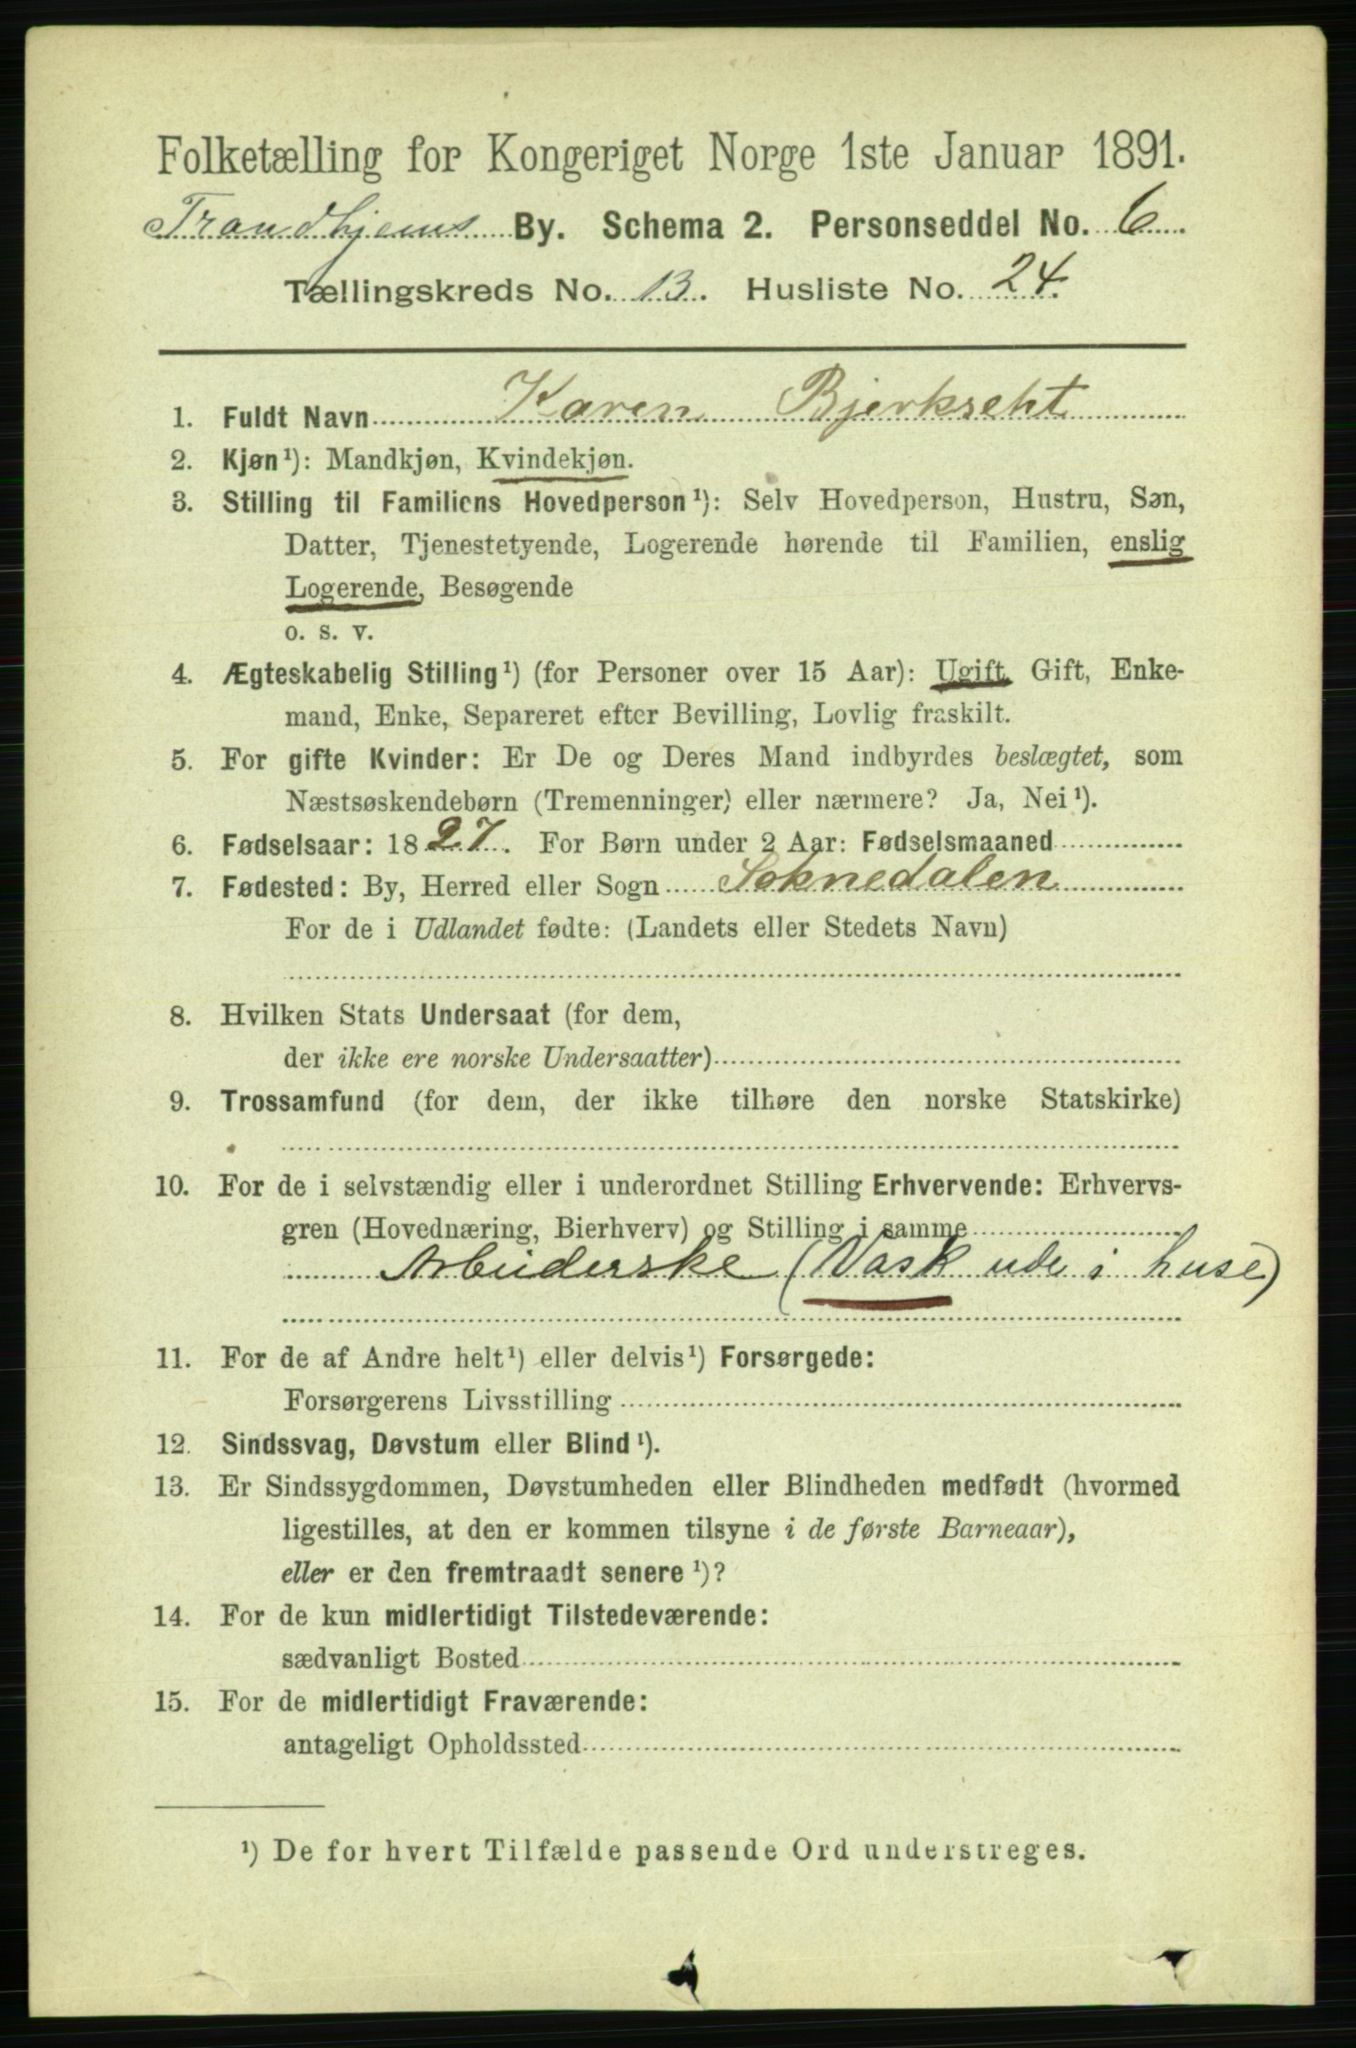 Folketælling for Kongeriget Norge 1ste Januar 1891.
Trondhjems By. Schema 2. Personseddel No. 6
Tællingskreds No. 13. Husliste No. 24.
1. Fuldt Navn Karen Bjerkseht
2. Kjøn¹): Mandkjøn, Kvindekjøn.
3. Stilling til Familiens Hovedperson¹): Selv Hovedperson, Hustru, Søn,
Datter, Tjenestetyende, Logerende hørende til Familien, enslig
Logerende, Besøgende
o. s. v.
4. Ægteskabelig Stilling¹) (for Personer over 15 Aar): Ugift, Gift, Enke-
mand, Enke, Separeret efter Bevilling, Lovlig fraskilt.
5. For gifte Kvinder: Er De og Deres Mand indbyrdes beslægtet, som
Næstsøskendebørn (Tremenninger) eller nærmere? Ja, Nei¹).
6. Fødselsaar: 1827. For Børn under 2 Aar: Fødselsmaaned
7. Fødested: By, Herred eller Sogn Soknedalen
For de i Udlandet fødte: (Landets eller Stedets Navn)
8. Hvilken Stats Undersaat (for dem,
der ikke ere norske Undersaatter)
9. Trossamfund (for dem, der ikke tilhøre den norske Statskirke)
10. For de i selvstændig eller i underordnet Stilling Erhvervende: Erhvervs-
gren (Hovednæring, Bierhverv) og Stilling i samme
Arbeiderske (Vask ude i huse)
11. For de af Andre helt¹) eller delvis¹) Forsørgede:
Forsørgerens Livsstilling
12. Sindssvag, Døvstum eller Blind¹).
13. Er Sindssygdommen, Døvstumheden eller Blindheden medfødt (hvormed
ligestilles, at den er kommen tilsyne i de første Barneaar),
eller er den fremtraadt senere¹)?
14. For de kun midlertidigt Tilstedeværende:
sædvanligt Bosted
15. For de midlertidigt Fraværende:
antageligt Opholdssted
¹) De for hvert Tilfælde passende Ord understreges.